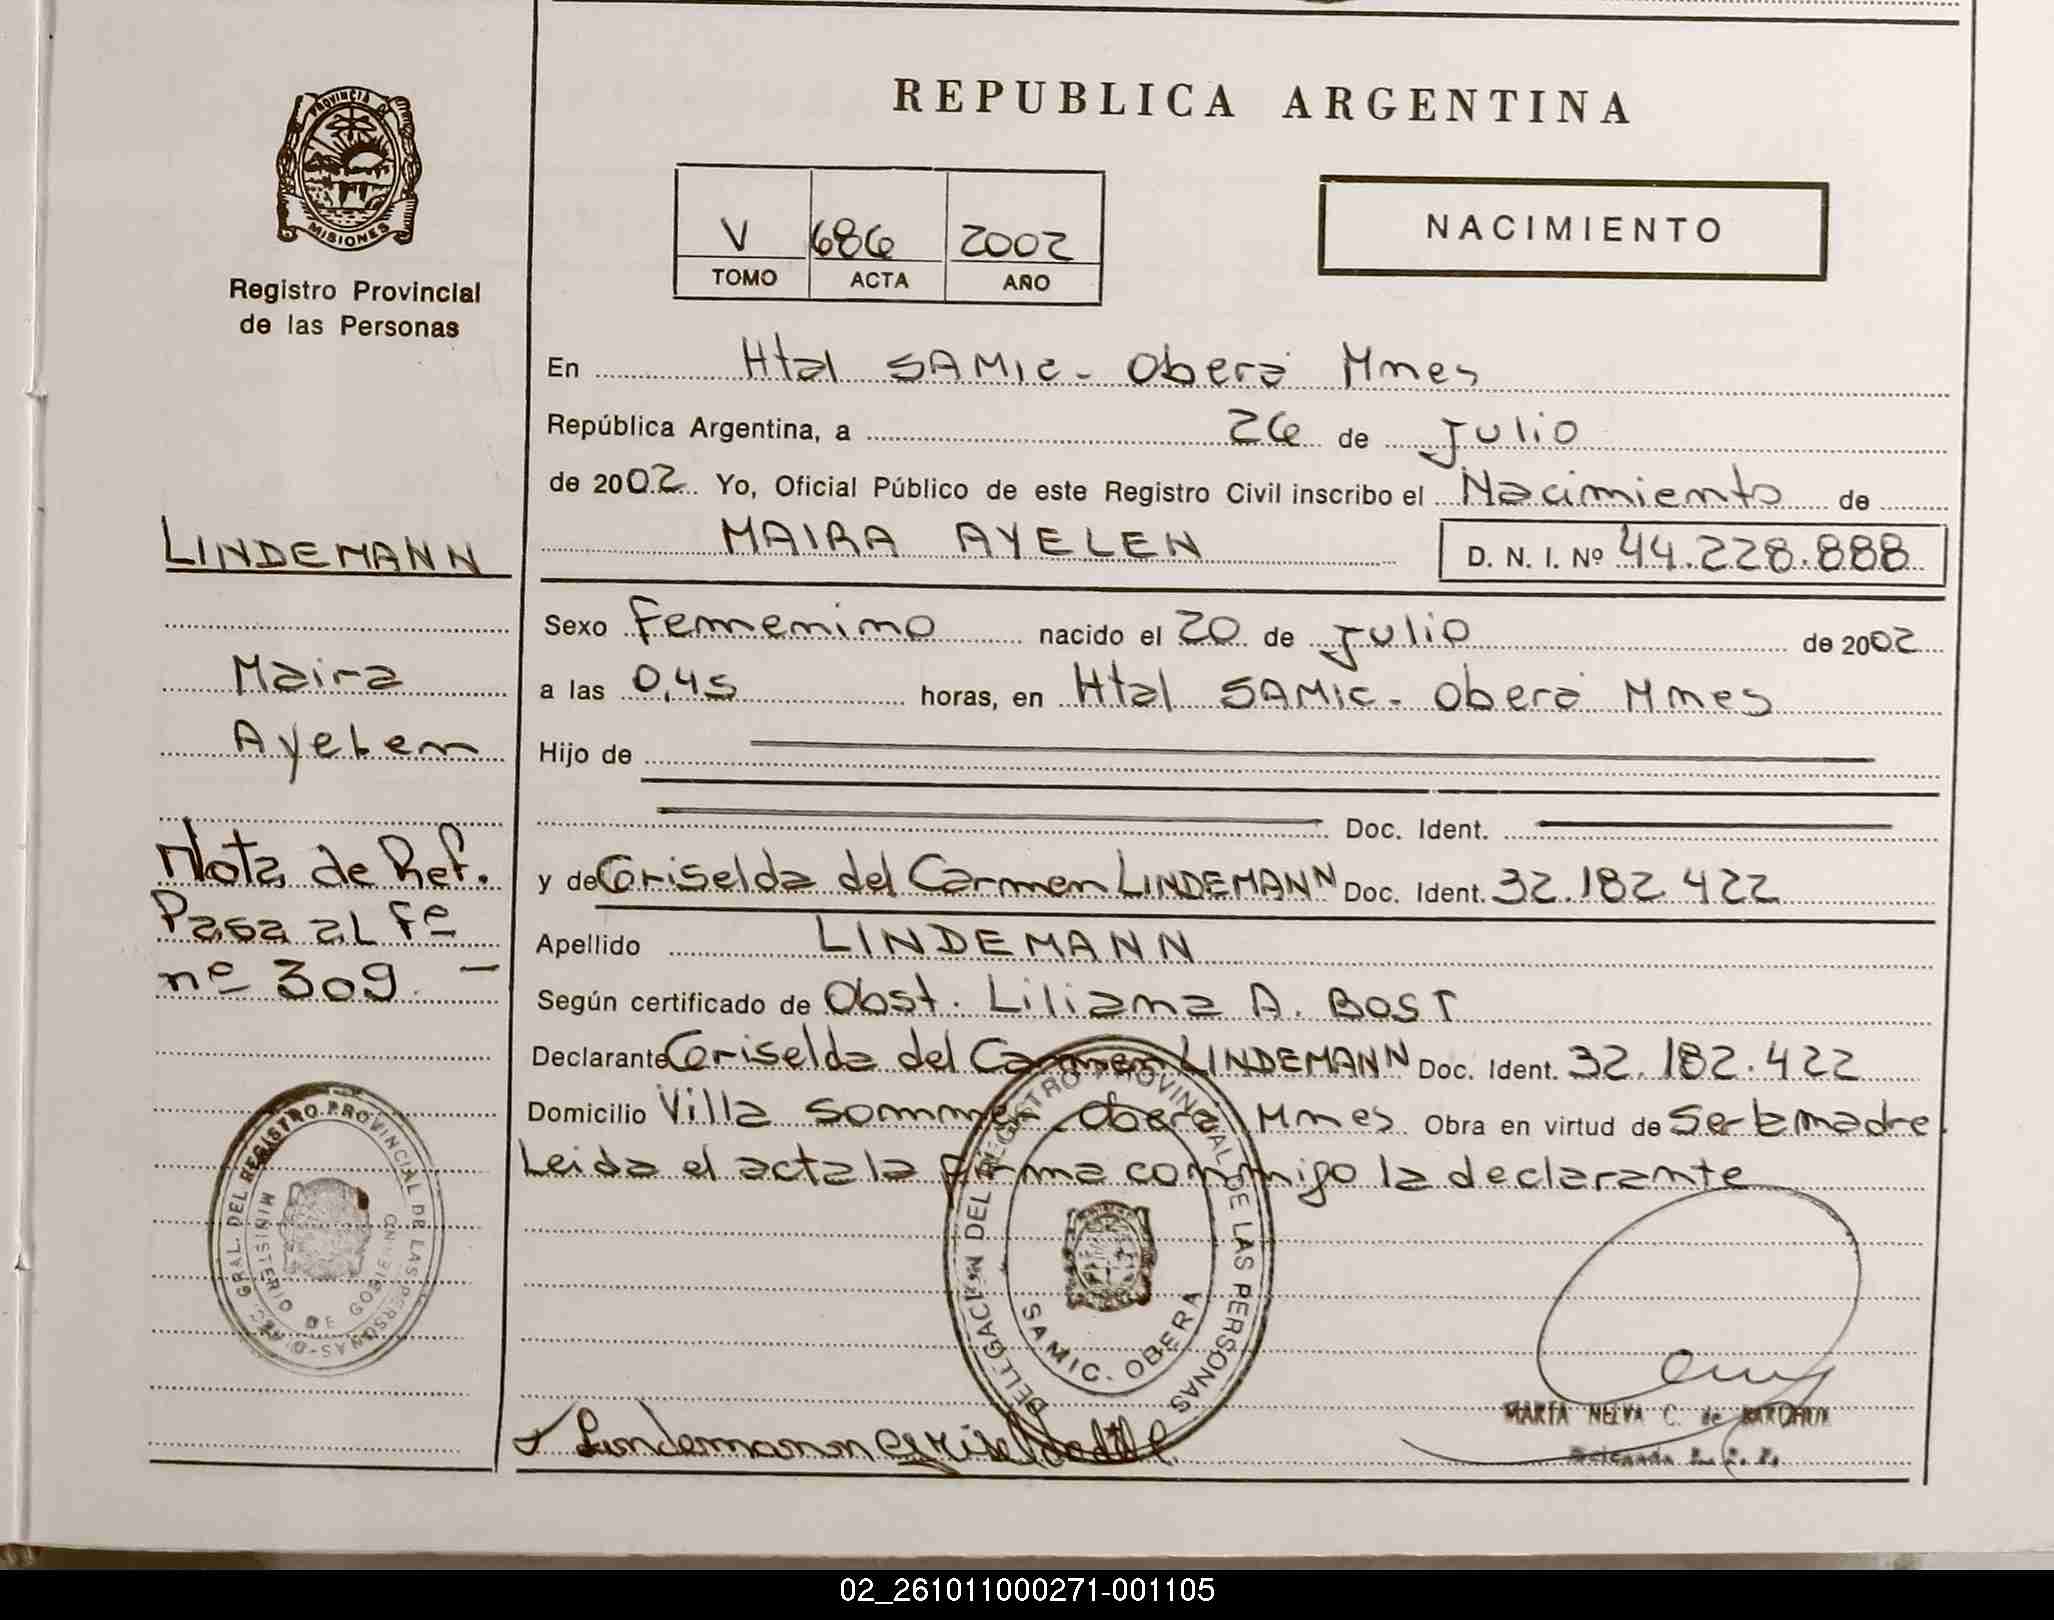 REPUBLICA ARGENTINA
PROVINCIA DE
MISIONES
Registro Provincial
de las Personas
V 686 2002
TOMO ACTA AÑO
NACIMIENTO
En Htal SAMIC - Oberá Mnes
República Argentina, a 26 de Julio
de 2002 Yo, Oficial Público de este Registro Civil inscribo el Nacimiento de
MAIRA AYELEN D. N. I. Nº 44.228.888
Sexo Femenino nacido el 20 de Julio de 2002
a las 0,45 horas, en Htal SAMIC - Oberá Mnes
Hijo de
Doc. Ident.
y de Griselda del Carmen LINDEMANN Doc. Ident. 32.182.422
Apellido LINDEMANN
Según certificado de Obst. Liliana A. BOST
Declarante Griselda del Carmen LINDEMANN Doc. Ident. 32.182.422
Domicilio Villa Sommer Oberá Mnes Obra en virtud de Ser La madre
Leida el acta la firma conmigo la declarante
LINDEMANN
Maira
Ayelen
Nota de Ref.
Pasa al Fº
nº 309. -
GRAL. DEL REGISTRO PROVINCIAL DE LAS PERSONAS
MINISTERIO DE GOBIERNO
DELEGACIÓN DEL REGISTRO PROVINCIAL DE LAS PERSONAS
SAMIC. OBERA
Lindemann Griselda del C
MARTA NELVA C. de
02_261011000271-001105